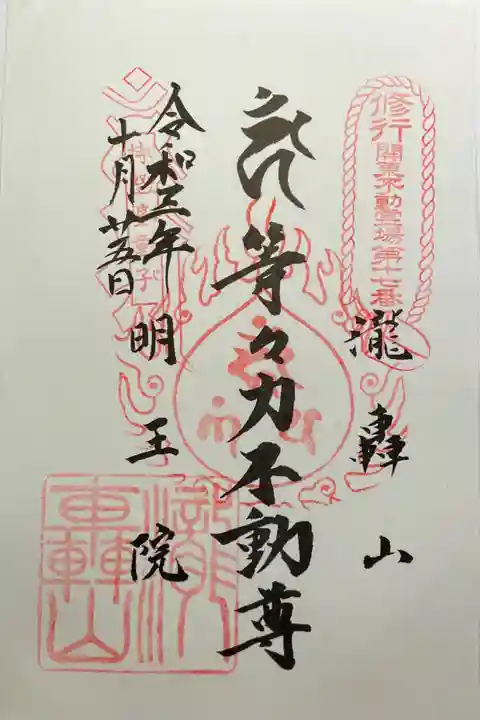 修行
関東不動霊場第十七番
瀧轟山
等々力不動尊
明王院
令和三年
十月廿五日
瀧轟山